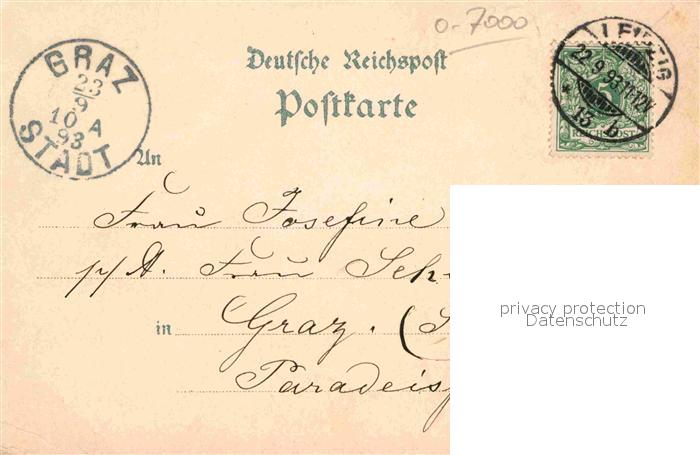 0-7000
LEIPZIG
22.9.93.11-12V.
* 13. b.
5
REICHSPOST
GRAZ
23
9
10 A
93
STADT
Deutsche Reichspost
Postkarte
An
Frau Josefine
p/A. Frau Sch
in Graz. (S
Paradeis
privacy protection
Datenschutz